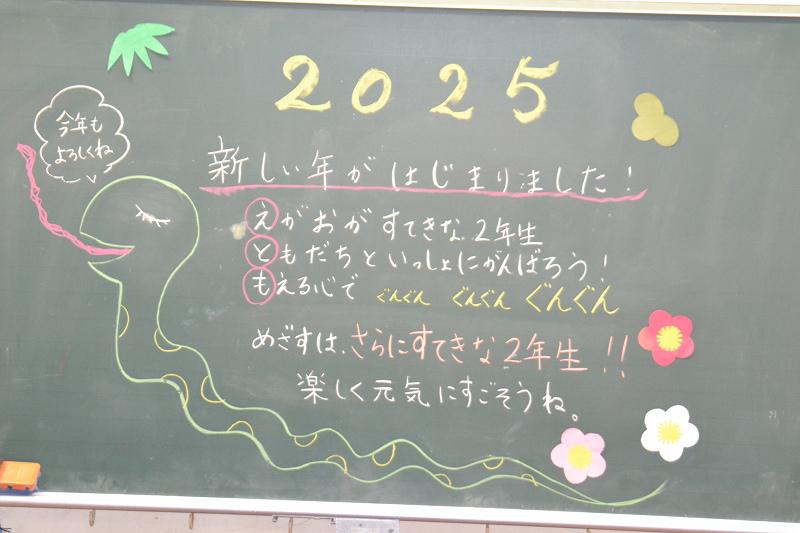 2025
今年も
よろしくね
新しい年がはじまりました!
えがおがすてきな2年生
ともだちといっしょにがんばろう!
もえる心で ぐんぐん ぐんぐん ぐんぐん
めざすは、さらにすてきな2年生!!
楽しく元気にすごそうね。